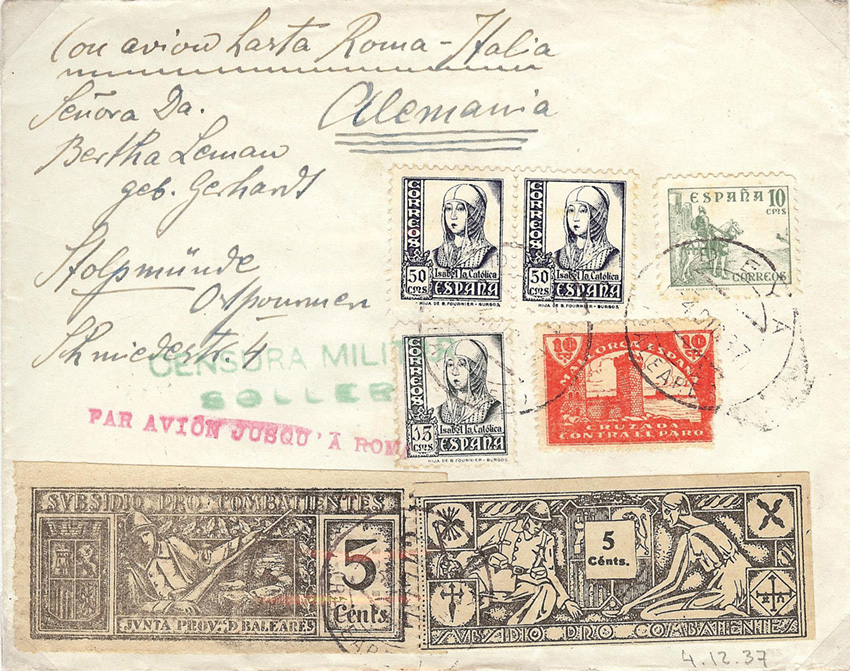 Con avion hasta Roma-Italia
Alemania
Señora Da.
Bertha Leman
geb. Gerhardt
Stolpmünde
Ostpommern
Schmiedestr. 4
CORREOS
50 CTMS
Isabel la Católica
ESPAÑA
HIJA DE B. FOURNIER-BURGOS.
CORREOS
50 CTMS
Isabel la Católica
ESPAÑA
HIJA DE B. FOURNIER-BURGOS.
ESPAÑA 10
CTMS
CORREOS
CORREOS
15 CTMS
Isabel la Católica
ESPAÑA
HIJA DE B. FOURNIER-BURGOS.
10 10
MALLORCA ESPAÑA
CRUZADA
CONTRA EL PARO
CENSURA MILITAR
SOLLER
PAR AVIÓN JUSQU'À ROMA
SVBSIDIO PRO-COMBATIENTES
5
Cénts.
JVNTA PROV. D BALEARES
5
Cénts.
SVBSIDIO PRO COMBATIENTES
4.12.37